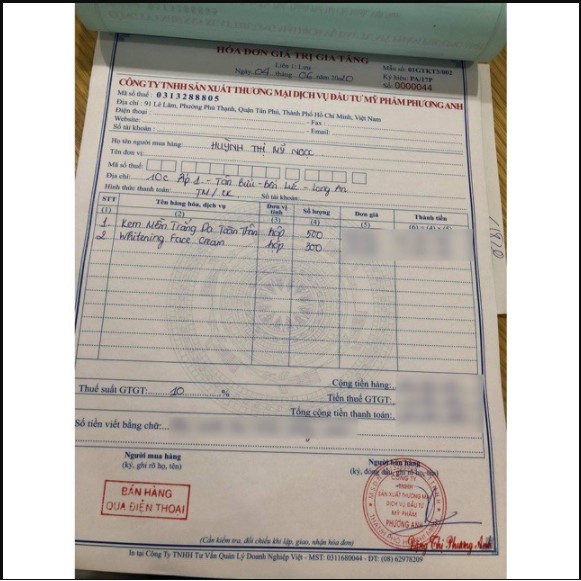 HÓA ĐƠN GIÁ TRỊ GIA TĂNG
Liên 1: Lưu
Ngày 04 tháng 06 năm 2020
Mẫu số: 01GTKT3/002
Ký hiệu: PA/17P
Số: 0000044
CÔNG TY TNHH SẢN XUẤT THƯƠNG MẠI DỊCH VỤ ĐẦU TƯ MỸ PHẨM PHƯƠNG ANH
Mã số thuế : 0313288805
Địa chỉ : 91 Lê Lâm, Phường Phú Thạnh, Quận Tân Phú, Thành Phố Hồ Chí Minh, Việt Nam
Điện thoại : - Fax :
Website: - Email:
Số tài khoản:
Họ tên người mua hàng: HUỲNH THỊ MỸ NGỌC
Tên đơn vị:
Mã số thuế:
Địa chỉ: 10c Ấp 1 - Tân Bửu - Bến Lức - Long An
Hình thức thanh toán: TM/CK Số tài khoản:
STT Tên hàng hóa, dịch vụ Đơn vị tính Số lượng Đơn giá Thành tiền
(1) (2) (3) (4) (5) (6) = (4) x (5)
1 Kem Mền Trắng Da Toàn Thân hộp 500
2 Whitening Face Cream hộp 300
Cộng tiền hàng:
Thuế suất GTGT: 10 % Tiền thuế GTGT:
Tổng cộng tiền thanh toán:
Số tiền viết bằng chữ:
Người mua hàng Người bán hàng
(ký, ghi rõ họ, tên) (ký, đóng dấu, ghi rõ họ, tên)
BÁN HÀNG
QUA ĐIỆN THOẠI
CÔNG TY
TNHH
SẢN XUẤT THƯƠNG MẠI
DỊCH VỤ ĐẦU TƯ
MỸ PHẨM
PHƯƠNG ANH
Đặng Thị Phương Anh
(Cần kiểm tra, đối chiếu khi lập, giao, nhận hóa đơn)
In tại Công Ty TNHH Tư Vấn Quản Lý Doanh Nghiệp Việt - MST: 0311680044 - ĐT: (08) 62978209